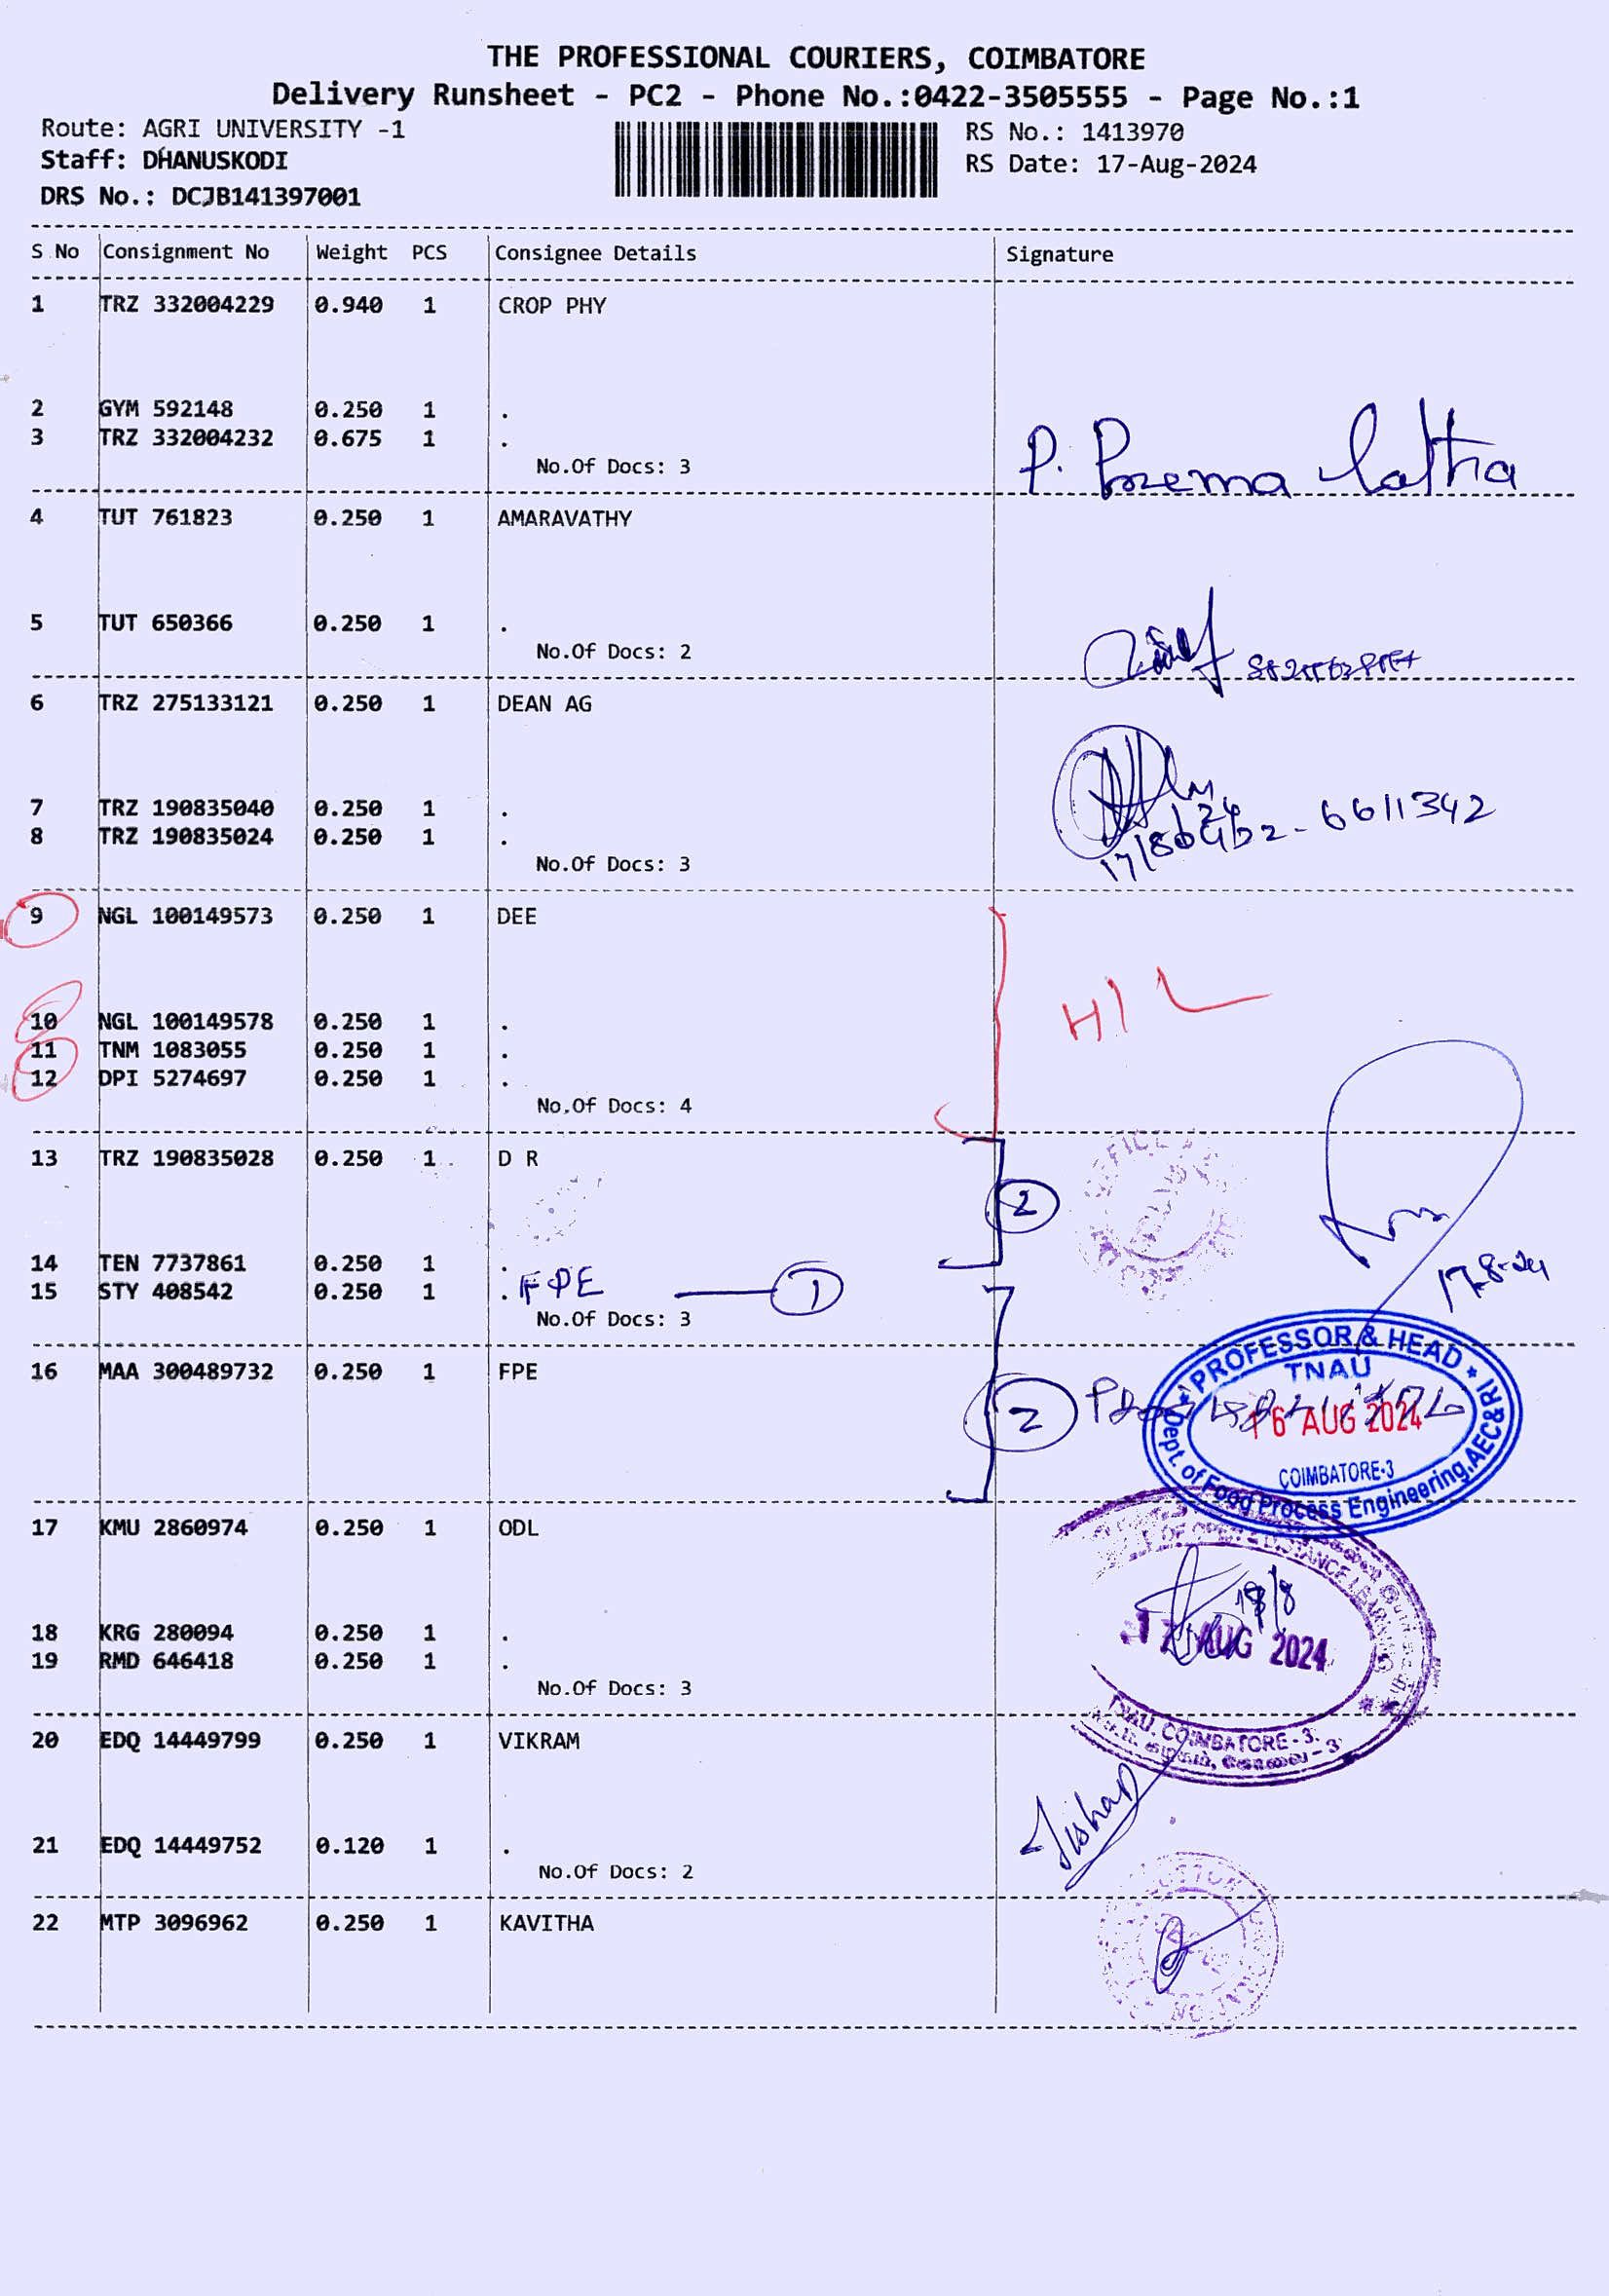 THE PROFESSIONAL COURIERS, COIMBATORE
Delivery Runsheet - PC2 - Phone No.:0422-3505555 - Page No.:1
Route: AGRI UNIVERSITY -1
Staff: DHANUSKODI
DRS No.: DCJB141397001
RS No.: 1413970
RS Date: 17-Aug-2024
S No Consignment No Weight PCS Consignee Details Signature
1 TRZ 332004229 0.940 1 CROP PHY
2 GYM 592148 0.250 1 .
3 TRZ 332004232 0.675 1 .
No.Of Docs: 3
P. Prema latha
4 TUT 761823 0.250 1 AMARAVATHY
5 TUT 650366 0.250 1 .
No.Of Docs: 2
6 TRZ 275133121 0.250 1 DEAN AG
7 TRZ 190835040 0.250 1 .
8 TRZ 190835024 0.250 1 .
No.Of Docs: 3
6611342
9 NGL 100149573 0.250 1 DEE
10 NGL 100149578 0.250 1 .
11 TNM 1083055 0.250 1 .
12 DPI 5274697 0.250 1 .
No.Of Docs: 4
13 TRZ 190835028 0.250 1 D R
2
14 TEN 7737861 0.250 1 .
15 STY 408542 0.250 1 . FPE 1
No.Of Docs: 3
17-8-24
16 MAA 300489732 0.250 1 FPE
2
PROFESSOR & HEAD
TNAU
16 AUG 2024
COIMBATORE-3
Dept. of Food Process Engineering, AEC&RI
17 KMU 2860974 0.250 1 ODL
18 KRG 280094 0.250 1 .
19 RMD 646418 0.250 1 .
No.Of Docs: 3
OF OPEN & DISTANCE LEARNING
17 AUG 2024
TNAU, COIMBATORE - 3.
20 EDQ 14449799 0.250 1 VIKRAM
21 EDQ 14449752 0.120 1 .
No.Of Docs: 2
22 MTP 3096962 0.250 1 KAVITHA